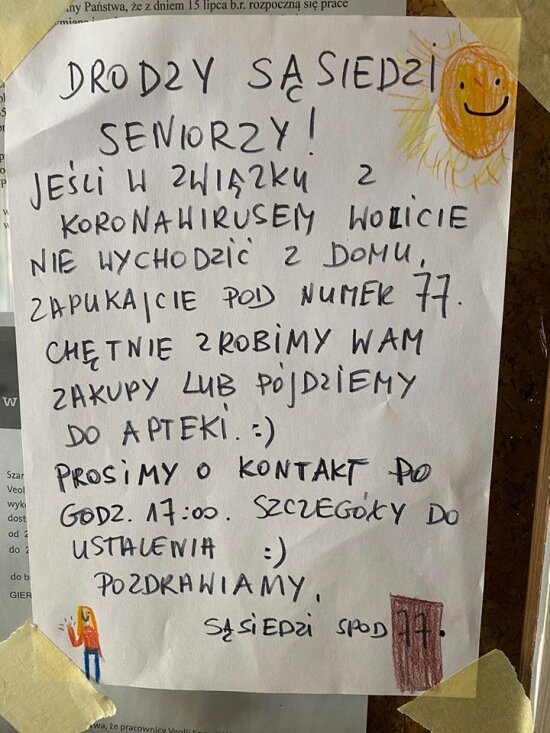 ny Państwa, że z dniem 15 lipca b.r. rozpoczną się prace
DRODZY SĄSIEDZI
SENIORZY!
JEŚLI W ZWIĄZKU Z
KORONAWIRUSEM WOLICIE
NIE WYCHODZIĆ Z DOMU,
ZAPUKAJCIE POD NUMER 77.
CHĘTNIE ZROBIMY WAM
ZAKUPY LUB PÓJDZIEMY
DO APTEKI. :)
PROSIMY O KONTAKT PO
GODZ. 17:00. SZCZEGÓŁY DO
USTALENIA :)
POZDRAWIAMY,
SĄSIEDZI SPOD 77.
W
Szar
Veol
wyk
dost
od 2
do 2
do b
GIER
że pracownicy Veolii